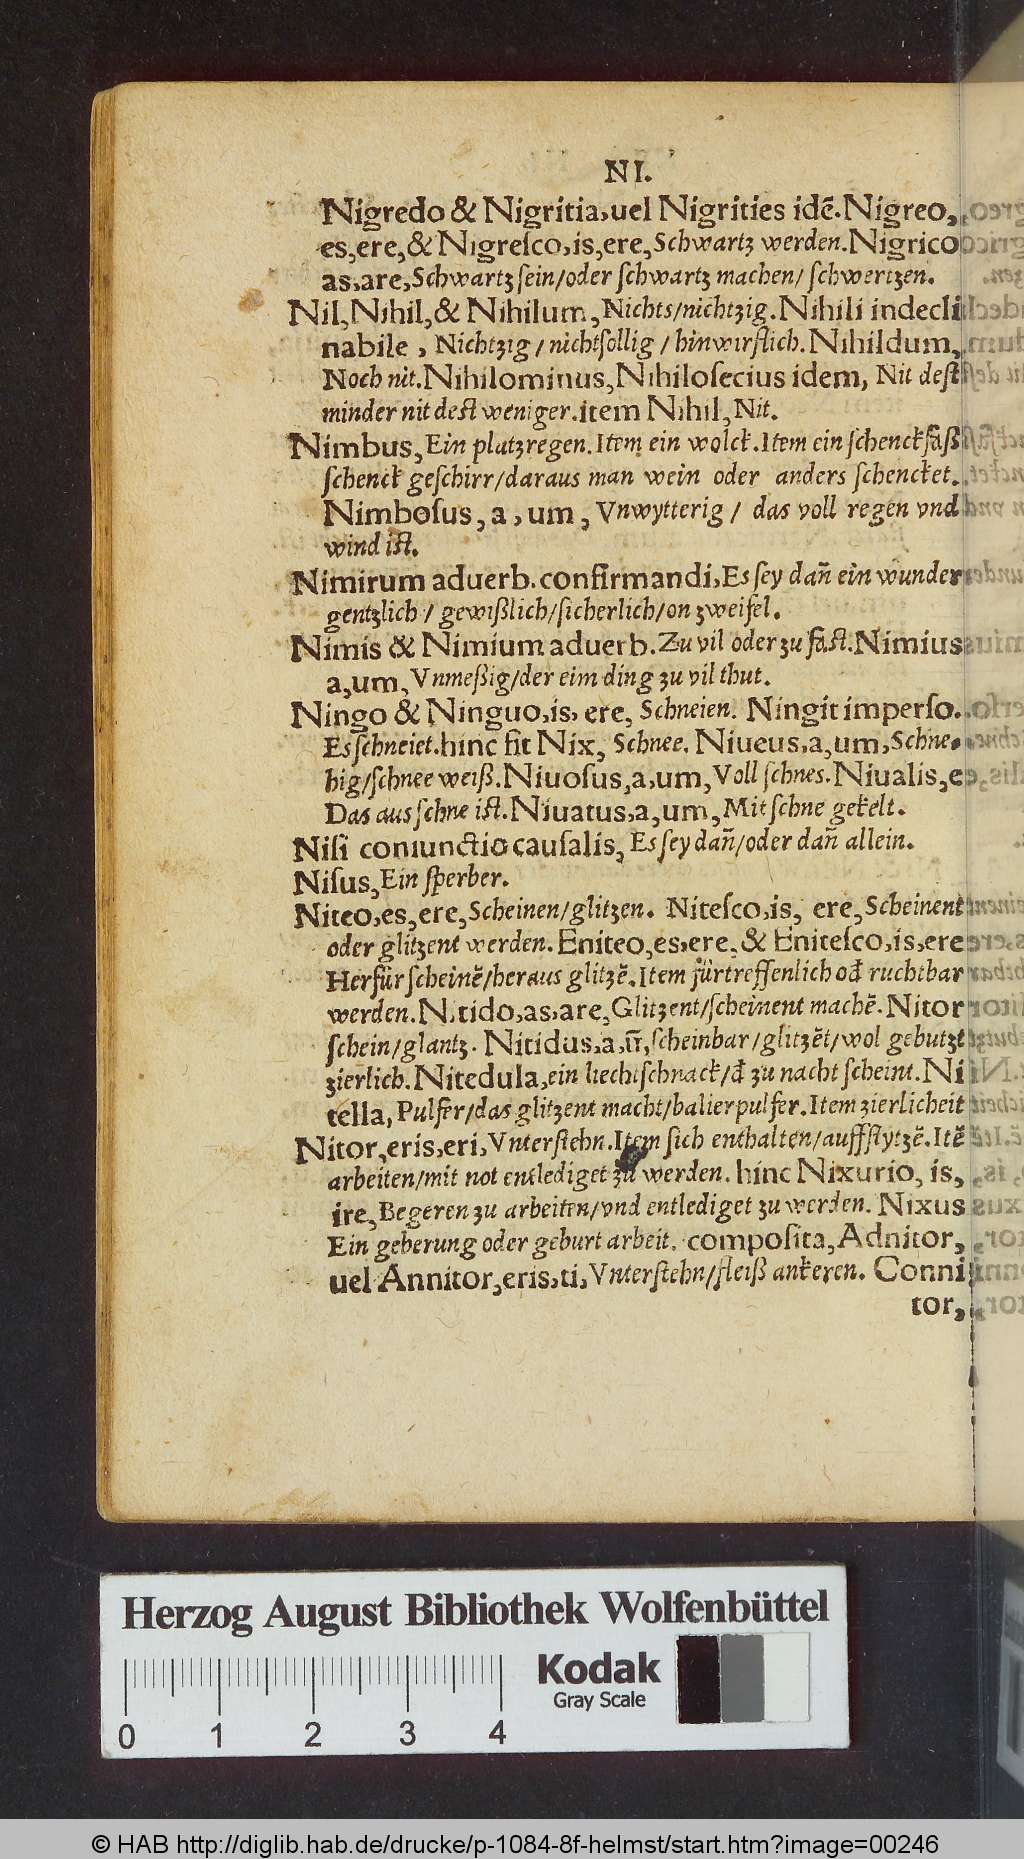 NI.
Nigredo & Nigritia, uel Nigrities idē. Nigreo,
es, ere, & Nigreſco, is, ere, Schwartz werden. Nigrico
as, are, Schwartz ſein/oder ſchwartz machen/ ſchwertzen.
Nil, Nihil, & Nihilum, Nichts/nichtzig. Nihili indecli
nabile, Nichtzig/ nichtſollig/ hinwirflich. Nihildum,
Noch nit. Nihilominus, Nihiloſecius idem, Nit deſt
minder nit deſt weniger. item Nihil, Nit.
Nimbus, Ein platzregen. Item ein wolck. Item ein ſchenckfaß
ſchenck geſchirr/daraus man wein oder anders ſchencket.
Nimboſus, a, um, Vnwytterig/ das voll regen vnd
wind iſt.
Nimirum aduerb. confirmandi, Es ſey dañ ein wunder
gentzlich/ gewißlich/ſicherlich/on zweifel.
Nimis & Nimium aduerb. Zu vil oder zu faſt. Nimius
a, um, Vnmeßig/der eim ding zu vil thut.
Ningo & Ninguo, is, ere, Schneien. Ningit imperſo.
Es ſchneiet. hinc fit Nix, Schnee. Niueus, a, um, Schne
hig/ſchnee weiß. Niuoſus, a, um, Voll ſchnes. Niualis, e,
Das aus ſchne iſt. Niuatus, a, um, Mit ſchne gekelt.
Niſi coniunctio cauſalis, Es ſey dañ/oder dañ allein.
Niſus, Ein ſperber.
Niteo, es, ere, Scheinen/glitzen. Niteſco, is, ere, Scheinent
oder glitzent werden. Eniteo, es, ere, & Eniteſco, is, ere
Herfür ſcheinē/heraus glitzē. Item fürtreffenlich od̄ ruchtbar
werden. Nitido, as, are, Glitzent/ſcheinent machē. Nitor
ſchein/glantz. Nitidus, a, ū, ſcheinbar/glitzēt/wol gebutzt
zierlich. Nitedula, ein liechtſchnack/d̄ zu nacht ſcheint. Ni
tella, Pulfer/das glitzent macht/balierpulfer. Item zierlicheit
Nitor, eris, eri, Vnterſtehn. Item ſich enthalten/auffſtytzē. Itē
arbeiten/mit not entlediget zu werden. hinc Nixurio, is,
ire, Begeren zu arbeiten/vnd entlediget zu werden. Nixus
Ein geberung oder geburt arbeit. compoſita, Adnitor,
uel Annitor, eris, ti, Vnterſtehn/fleiß ankeren. Conni
tor,
Herzog August Bibliothek Wolfenbüttel
Kodak
Gray Scale
0 1 2 3 4
© HAB http://diglib.hab.de/drucke/p-1084-8f-helmst/start.htm?image=00246